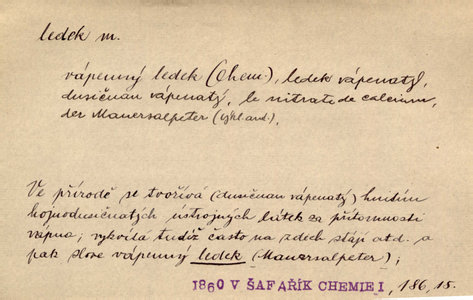 ledek m.
vápenný ledek (Chem.), ledek vápenatý,
dusičnan vápenatý, le nitrate de calcium,
der Mauersalpeter
Ve přírodě se tvořívá (dusičnan vápenatý) hnitím
hojnodusičnatých ústrojných látek za přítomnosti
vápna; vykvítá tudíž často na zdech stájí atd. a
pak slove vápenný ledek (Mauersalpeter);
1860 V ŠAFAŘÍK CHEMIE I, 186, 15.